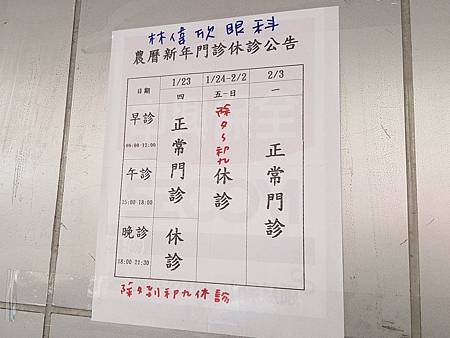 林偉欣眼科
農曆新年門診休診公告
日期 1/23 四 1/24-2/2 五-日 2/3 一
早診 09:00-12:00
午診 15:00-18:00
晚診 18:00-21:30
正常門診
休診
除夕~初九
休診
正常門診
除夕到初九休診